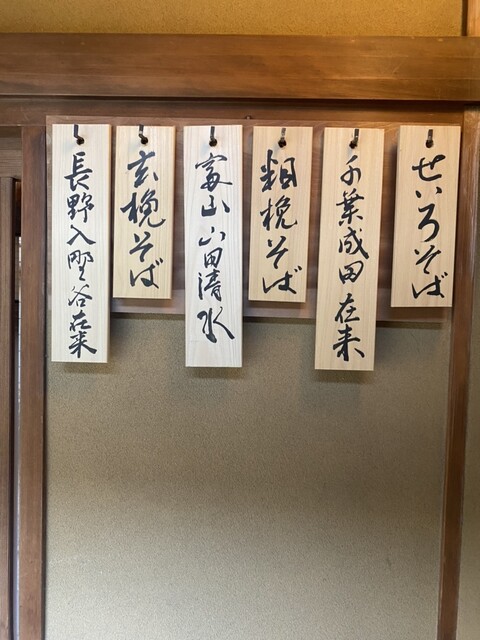 せいろそば
千葉成田在来
粗挽そば
富山山田清水
玄挽そば
長野入野谷在来